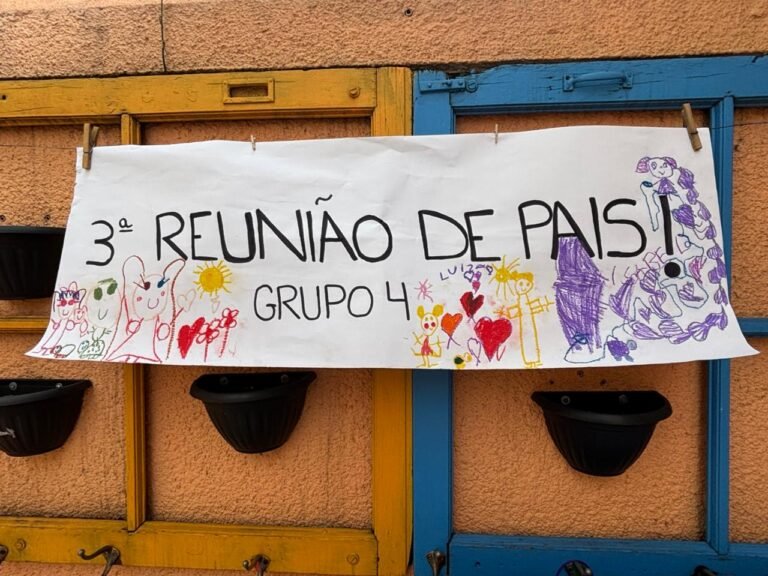 3ª REUNIÃO DE PAIS!
GRUPO 4